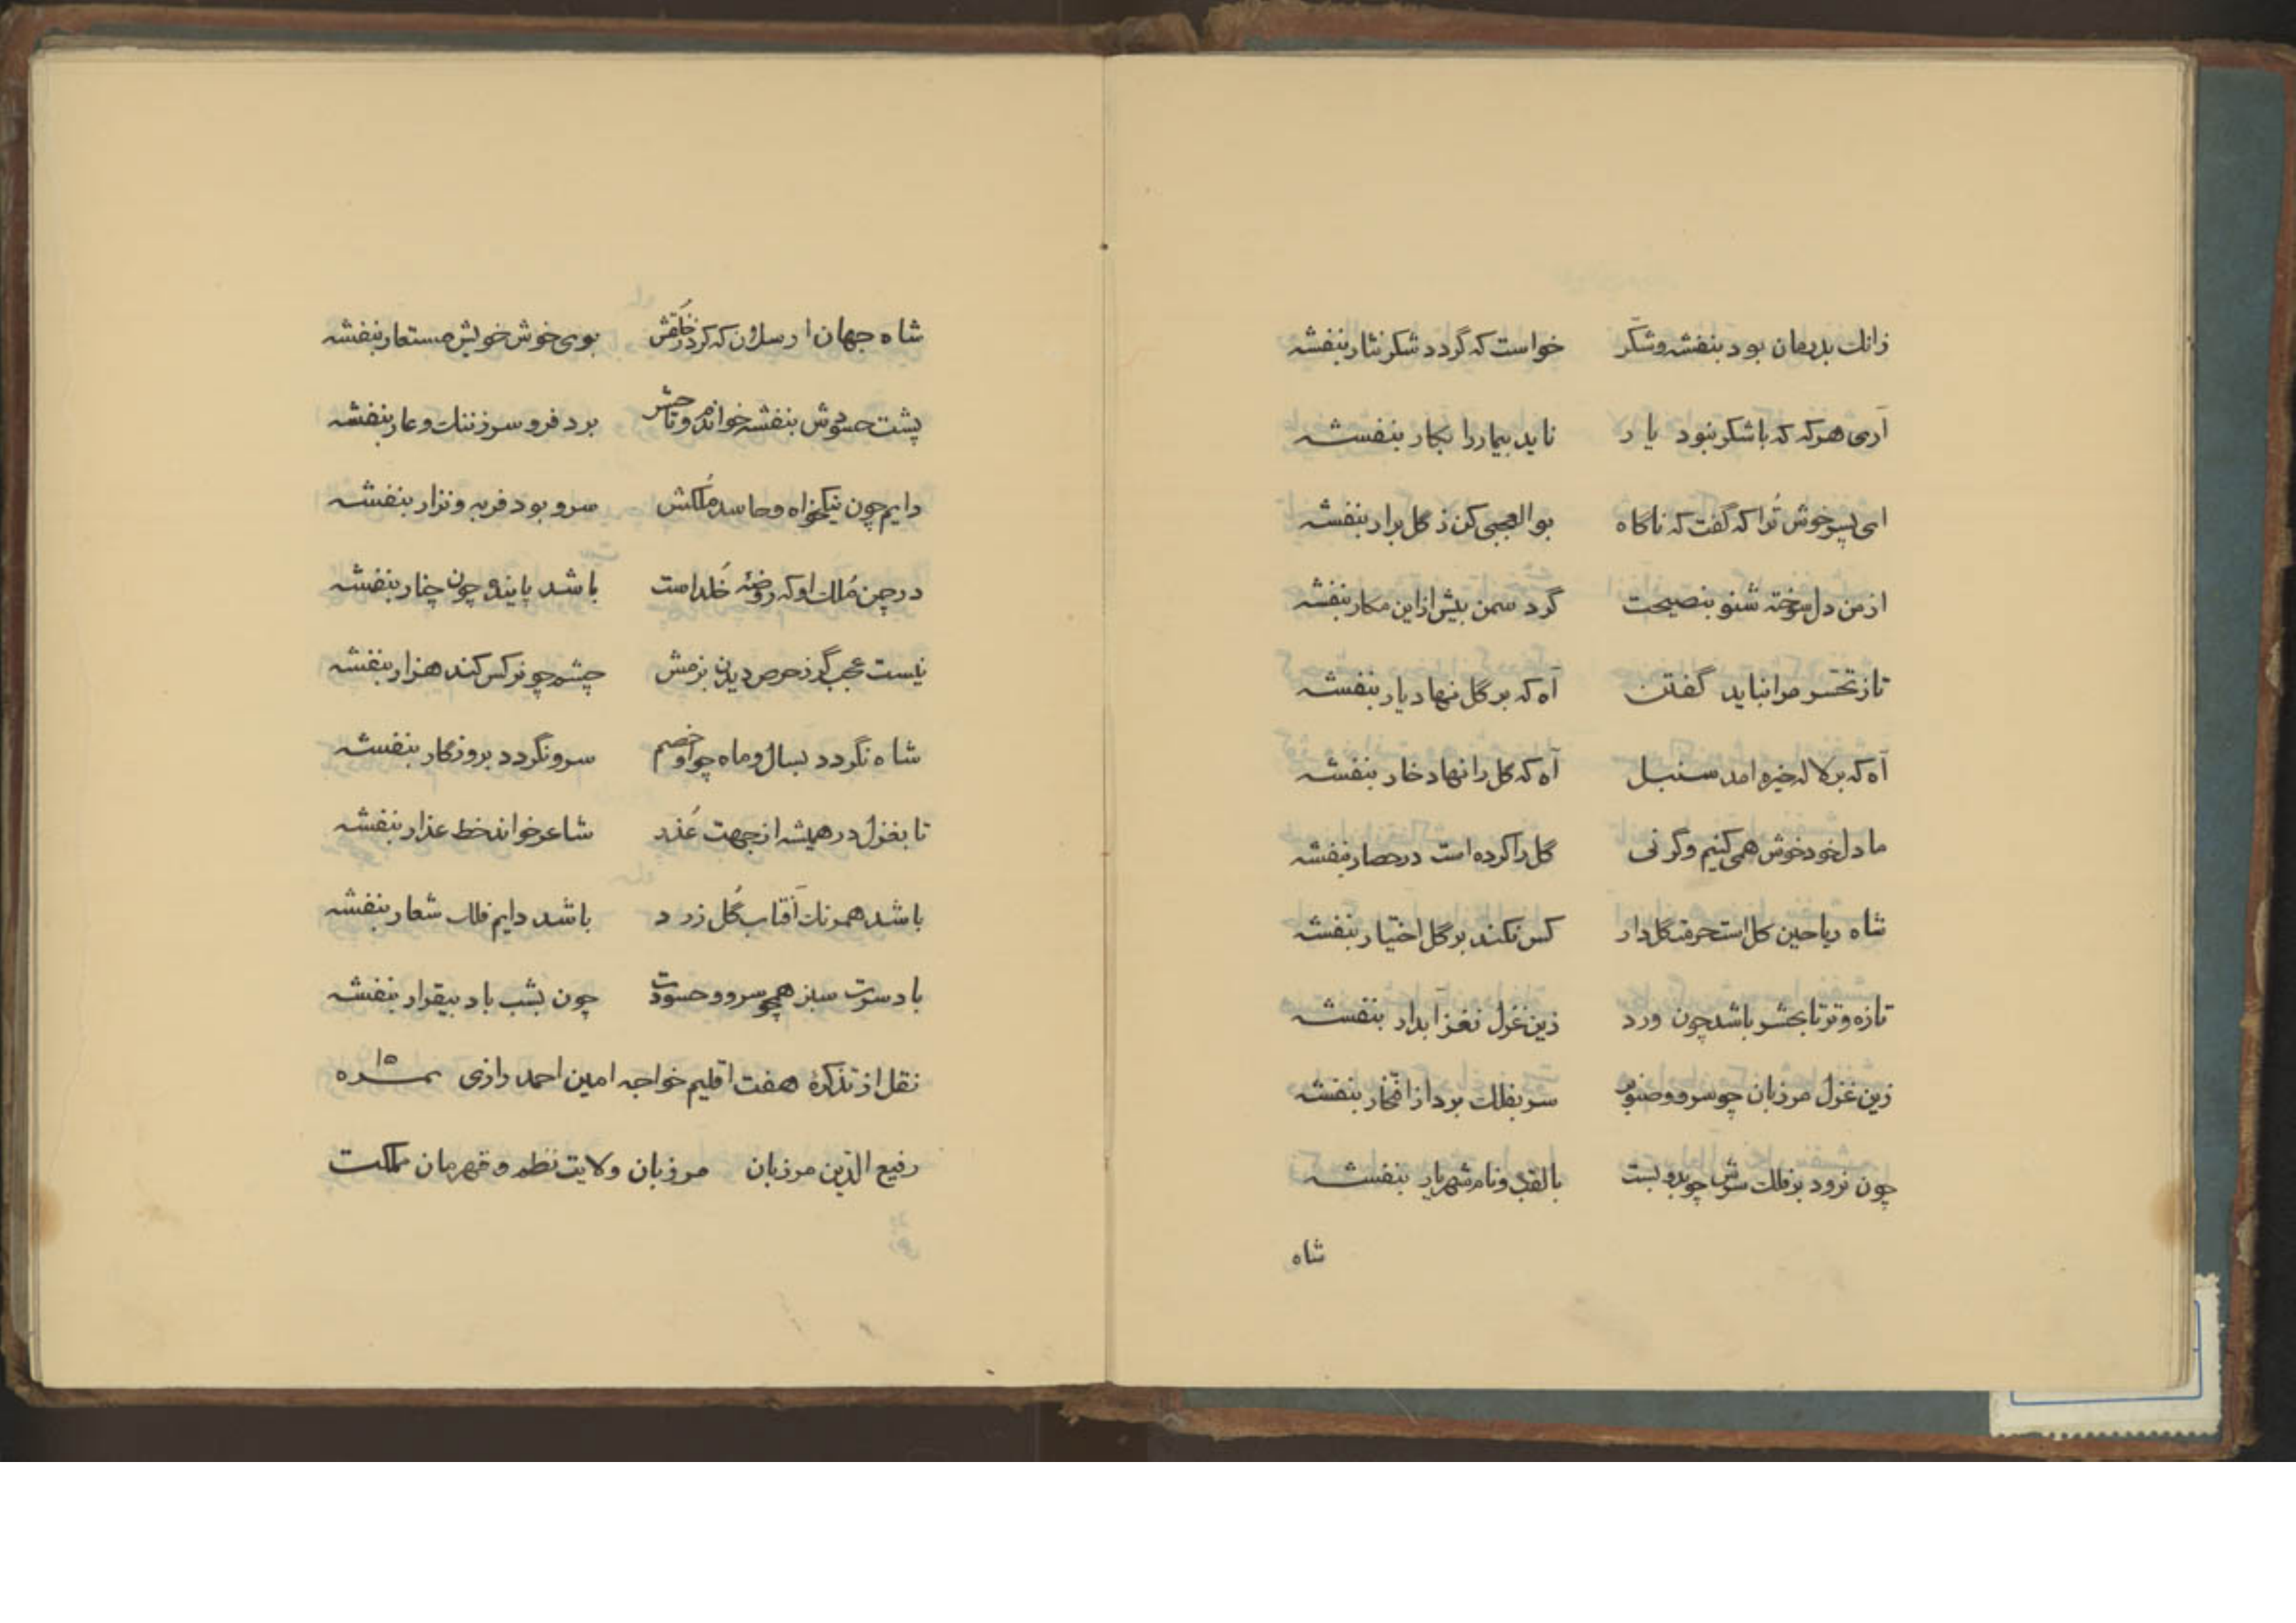 زانك بدرمان بود بنفشه وشكّر خواست که گردد شکر نثار بنفشه
آری هرکه که باشکر نبود یار ناید بیمار را بکار بنفشه
ای پسر خوش ترا که گفت که ناگاه بوالعجبی کن ز گل برار بنفشه
از من دل سوخته شنو بنصیحت گرد سمن بیش از این مکار بنفشه
تا ز تحسر مرا نباید گفتن آه که بر گل نهاد یار بنفشه
آه که بر لاله خیره امد سنبل آه که گل را نهاد خار بنفشه
ما دل خود خوش همی کنیم وگر نی گل را کرده است در حصار بنفشه
شاه ریاحین گل است حرمت گل دار کس نکند بر گل اختیار بنفشه
تازه و تر تا بحشر باشد چون ورد زین غزل نغز آبدار بنفشه
زین غزل مرزبان چو سرو و صنوبر سر بفلك برد از افتخار بنفشه
چون نرود بر فلك سرش چو بدو بست بالقب و نام شهریار بنفشه
شاه
شاه جهان ارسلان که کرد ز خلقش بوی خوش خویش مستعار بنفشه
پشت حسودش بنفشه خواندم و تا حشر برد فرو سر ز ننك و عار بنفشه
دایم چون نیکخواه و حاسد ملکش سرو بود فربه و نزار بنفشه
در چمن ملك او که روضهٔ خلد است باشد پاینده چون چنار بنفشه
نیست عجب گر ز حرص دیدن بزمش چشم چو نرگس کند هزار بنفشه
شاه نگردد بسال و ماه چو او خصم سرو نگردد بروزگار بنفشه
تا بغزل در همیشه از جهت عذر شاعر خواند خط عذار بنفشه
باشد همرنك آفتاب گل زرد باشد دایم فلك شعار بنفشه
باد سرت سبز همچو سرو و حسودت چون بشب باد بیقرار بنفشه
نقل از تذکرهٔ هفت اقلیم خواجه امین احمد رازی نمره ۱۵
رفیع الدّین مرزبان مرزبان ولایت نظم و قهرمان مملکت